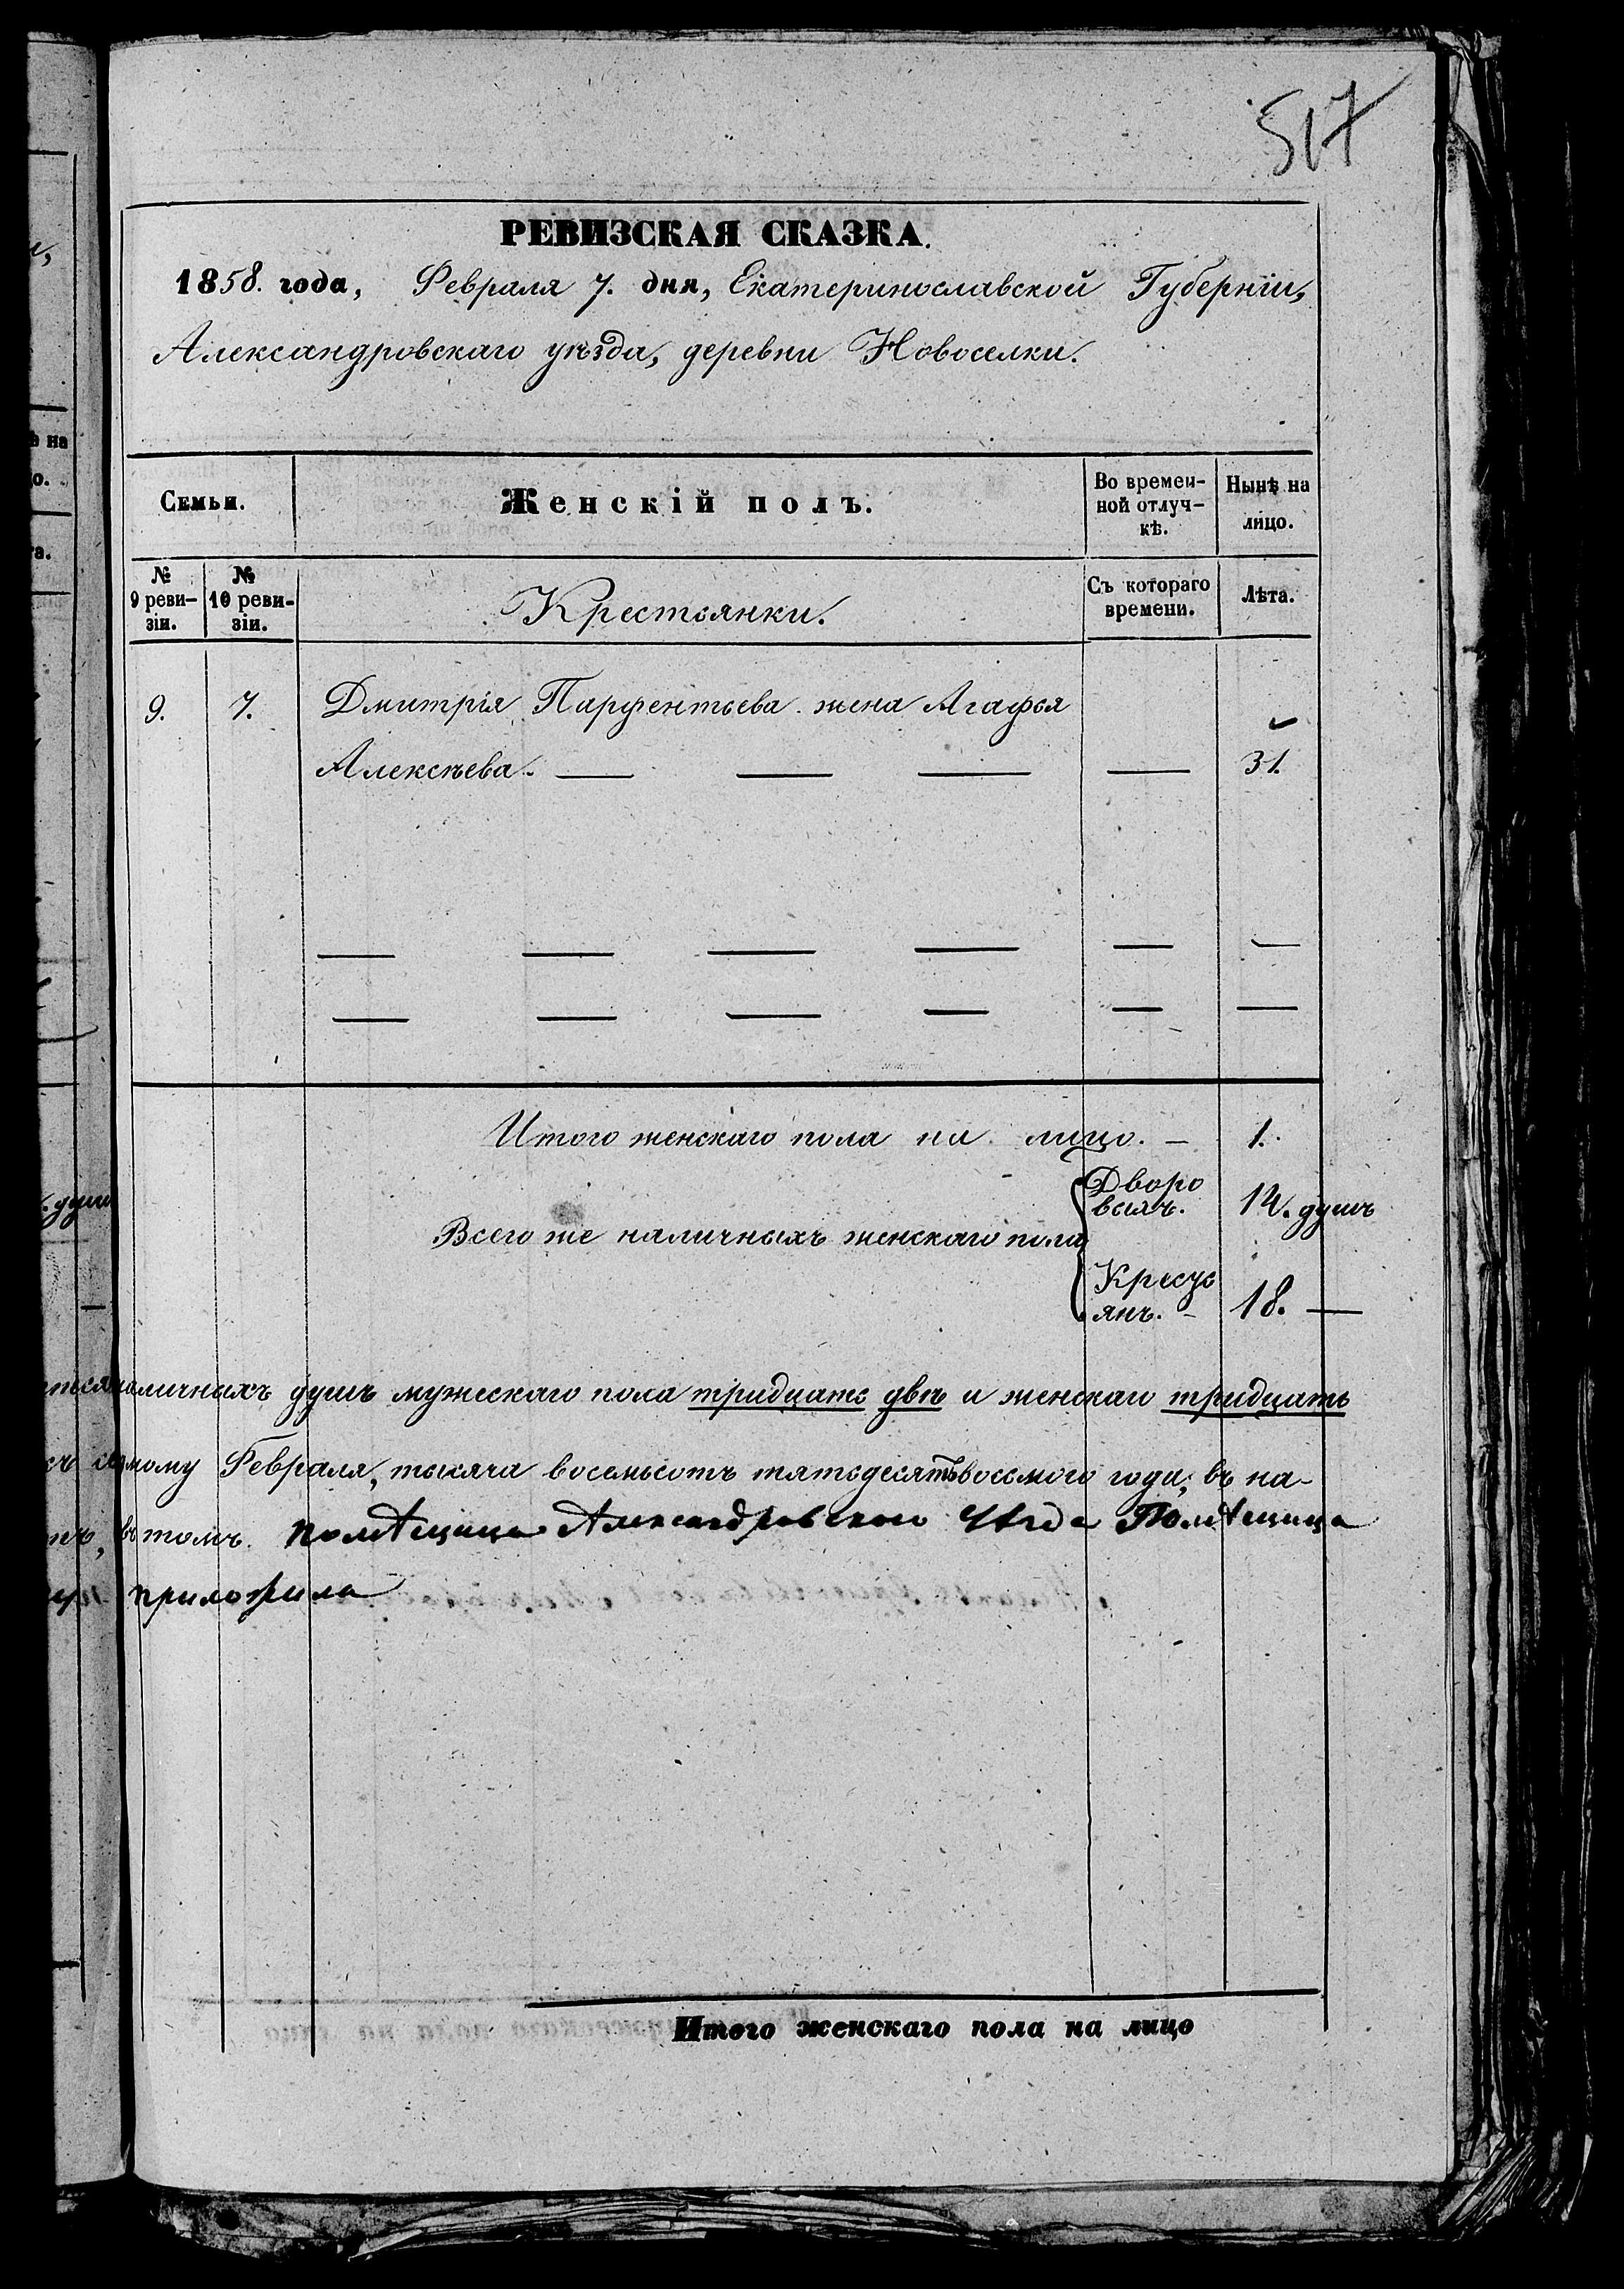 517
РЕВИЗСКАЯ СКАЗКА.
1858. года, Февраля 7. дня, Екатеринославской Губерніи,
Александровскаго уѣзда, деревни Новоселки.
Семьи.
Женскій полъ.
Во времен-
ной отлуч-
кѣ.
Нынѣ на
лицо.
№
9 реви-
зіи.
№
10 реви-
зіи.
Крестьянки.
Съ котораго
времени.
Лѣта.
9. 7. Дмитрія Парфентьева жена Агафья
Алексѣева. — — — — 31.
— — — — — —
— — — — — —
Итого женскаго пола на лицо. — 1.
Дворо
выхъ. 14. душъ
Всего же наличныхъ женскаго пола
Кресть
янъ. - 18. —
наличныхъ душъ мужескаго пола тридцать двѣ и женскаго тридцать
седмому Февраля, тысяча восемьсотъ пятьдесятъ восьмого года, въ на-
въ томъ. помѣщица Александровского Уѣзда Помѣщица
приложила
Итого женскаго пола на лицо